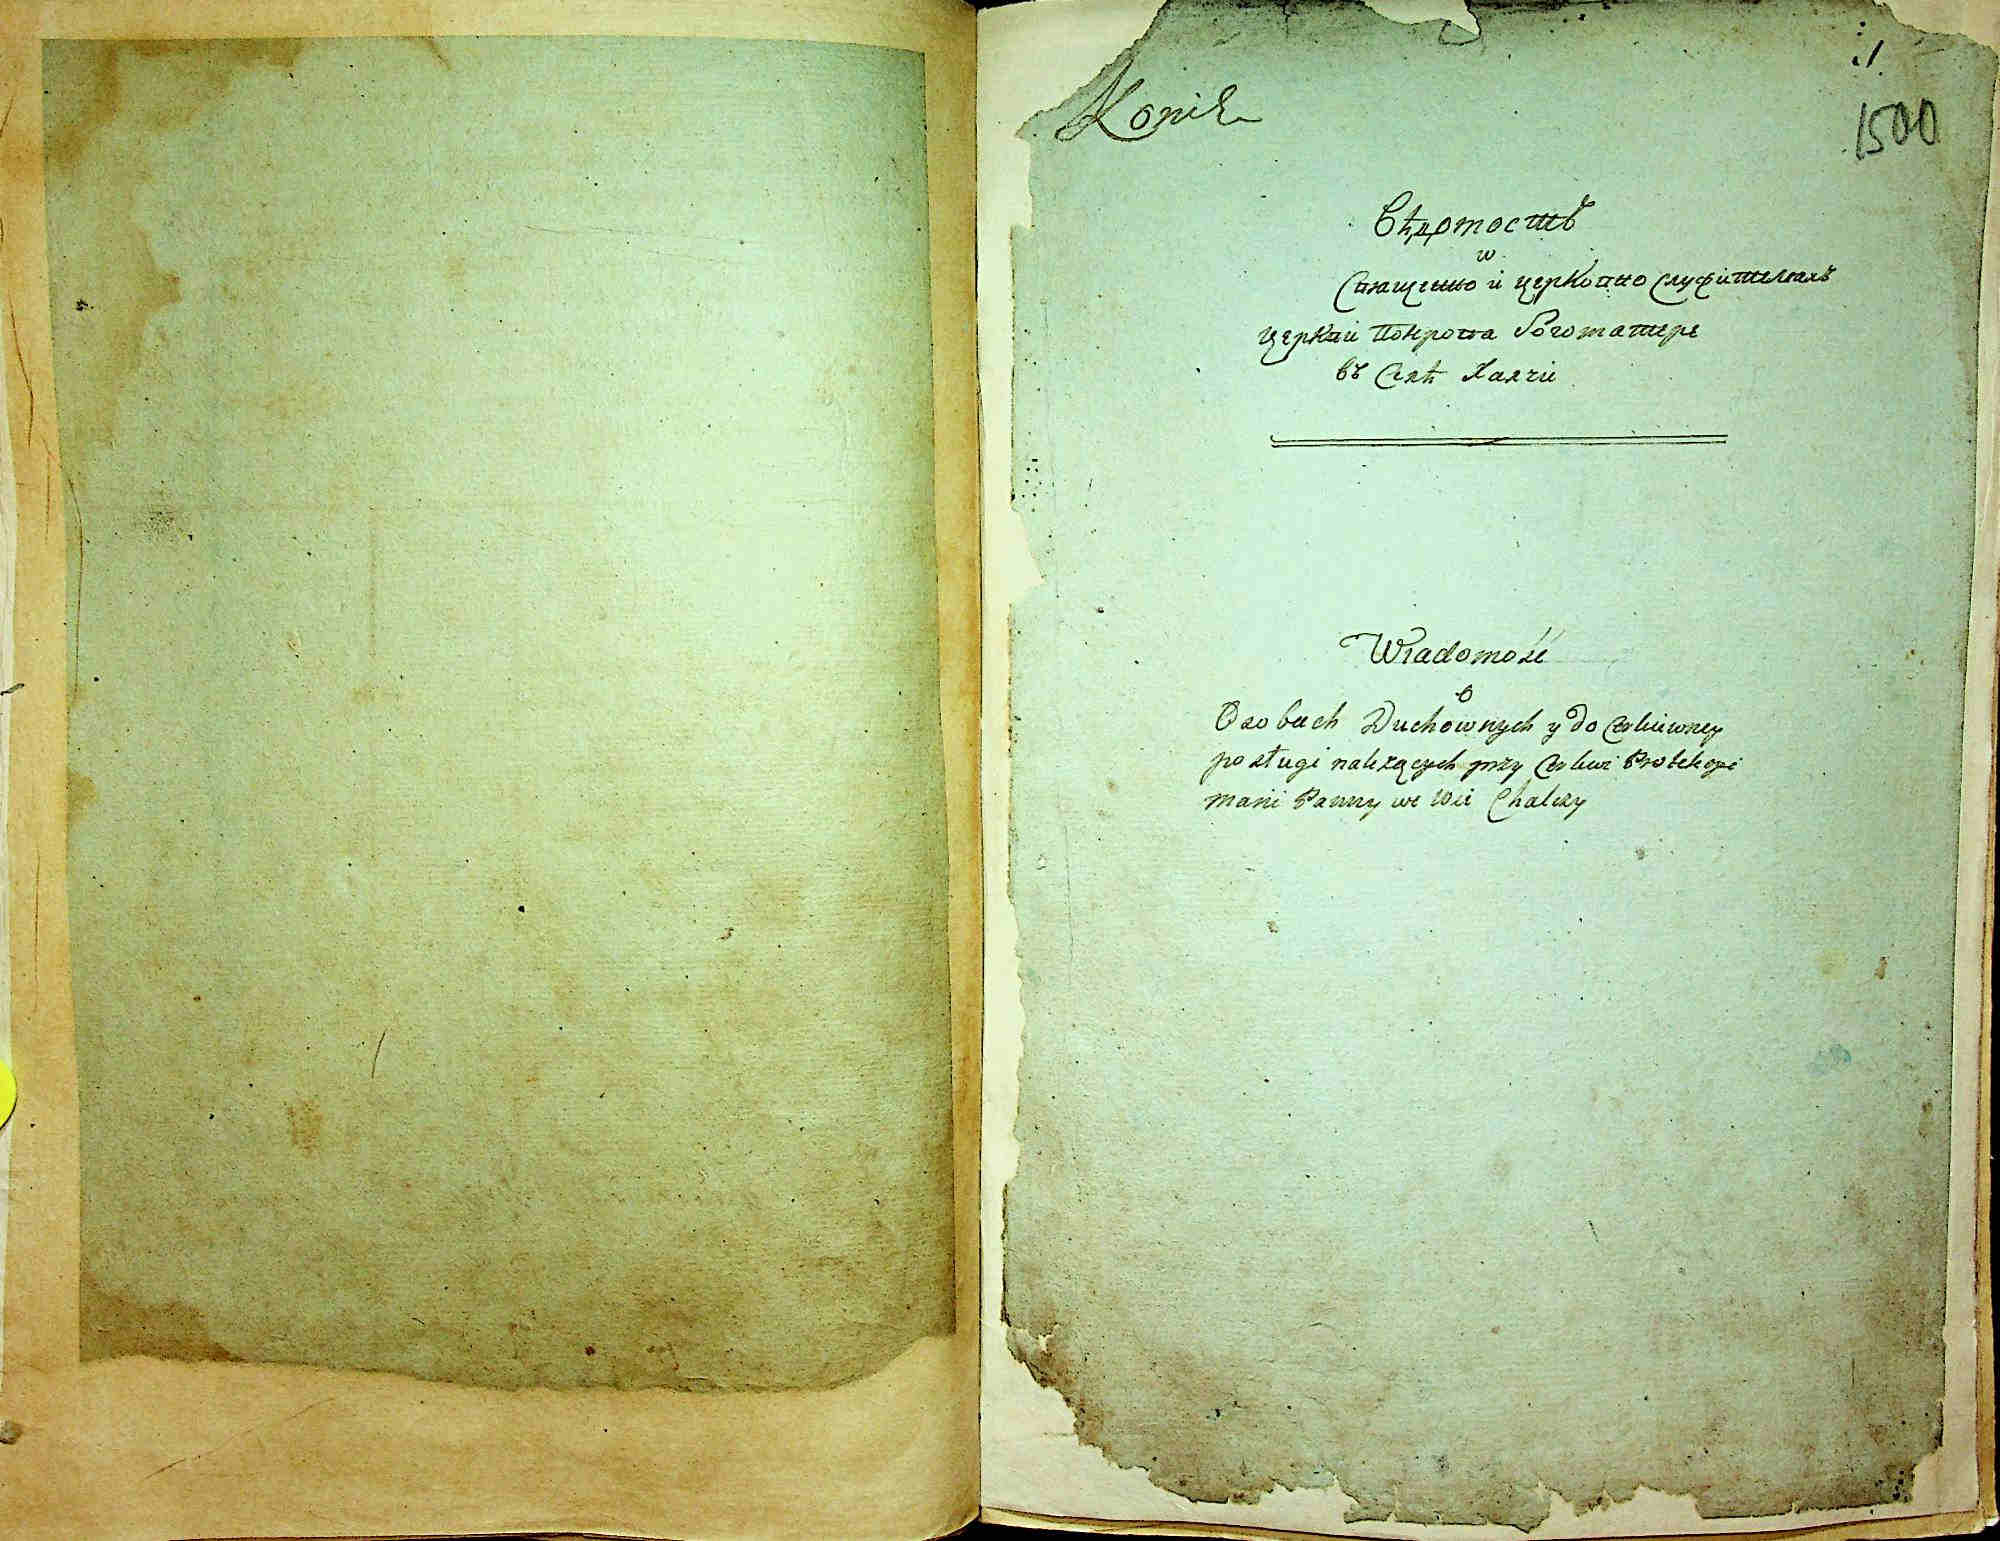 1
1500
Копіѣ
Вѣдомость
ѡ
Священно и церковно служителяхъ
церкви Покрова Богоматере
въ Селѣ Халчи
Wiadomość
o
Osobach Duchownych y do Cerkiewney
posługi należących przy Cerkwi Protekcyi
Marii Panny we Wsi Chalczy